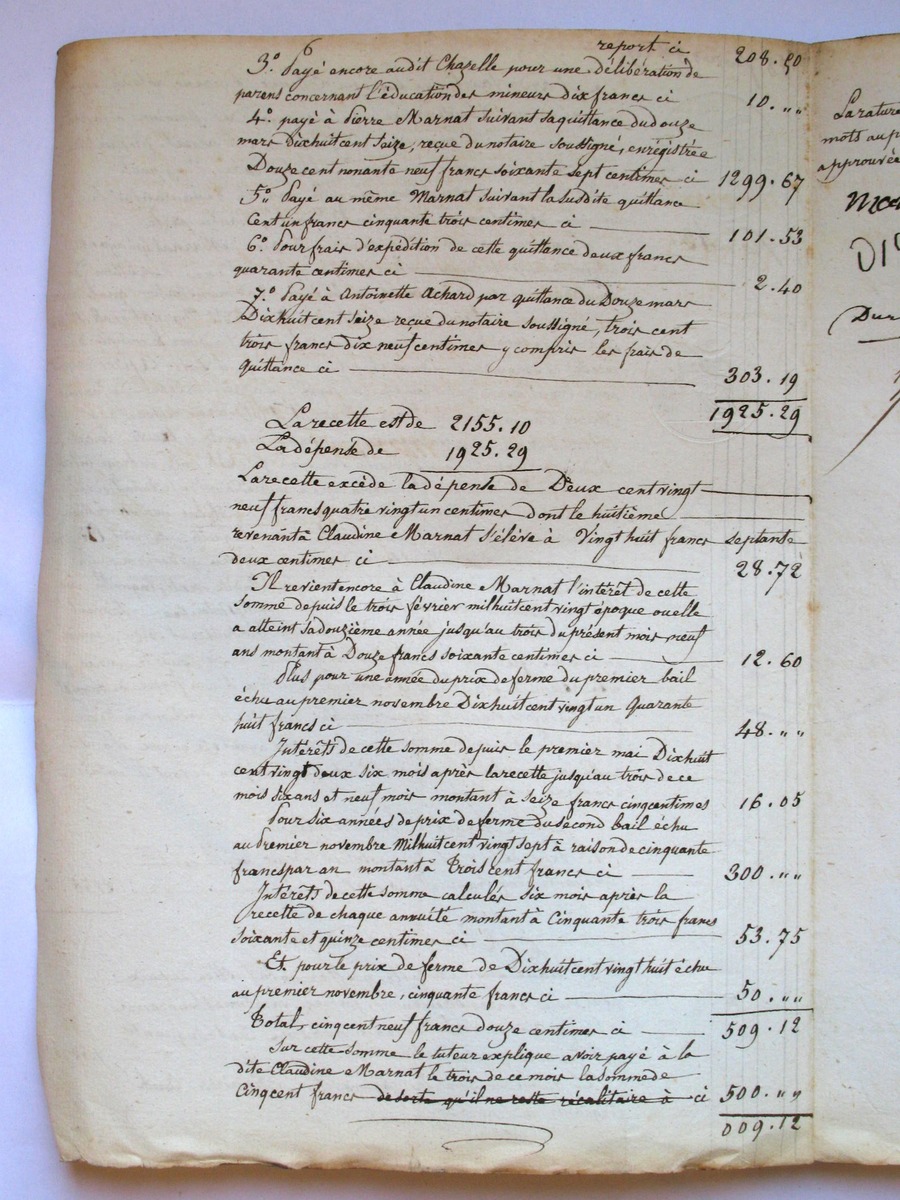 6 report ci 208.50
3.° Payé encore audit Chazelle pour une délibération de
parens concernant l'éducation des mineurs dix francs ci 10. „ „
4.° payé à Pierre Marnat suivant sa quittance du douze
mars Dixhuit cent seize, reçue du notaire soussigné, enregistrée
Douze cent nonante neuf francs soixante sept centimes ci 1299.67
5.° Payé au même Marnat suivant la susdite quittance
Cent un francs cinquante trois centimes ci 101.53
6.° Pour frais d'expédition de cette quittance deux francs
quarante centimes ci 2.40
7.° Payé à Antoinette Achard par quittance du Douze mars
Dixhuit cent seize reçue du notaire soussigné, trois cent
trois francs dix neuf centimes y compris les frais de
quittance ci 303.19
1925.29
La recette est de 2155.10
La dépense de 1925.29
La recette excède la dépense de Deux cent vingt
neuf francs quatre vingt un centimes dont le huitième
revenant à Claudine Marnat s'élève à Vingt huit francs septante
deux centimes ci 28.72
Il revient encore à Claudine Marnat l'intérêt de cette
somme depuis le trois février mil huit cent vingt époque ou elle
a atteint sa douzième année jusqu'au trois du présent mois neuf
ans montant à Douze francs soixante centimes ci 12.60
Plus pour une année du prix de ferme du premier bail
échu au premier novembre Dixhuit cent vingt un Quarante
huit francs ci 48. „ „
Intérêts de cette somme depuis le premier mai Dixhuit
cent vingt deux six mois après la recette jusqu'au trois de ce
mois six ans et neuf mois montant à seize francs cinq centimes 16.05
Pour six années de prix de ferme du second bail échu
au Premier novembre Mil huit cent vingt sept à raison de cinquante
francs par an montant à Trois cent francs ci 300. „ „
Intérêts de cette somme calculés six mois après la
recette de chaque annuité montant à Cinquante trois francs
soixante et quinze centimes ci 53.75
Et pour le prix de ferme de Dixhuit cent vingt huit échu
au premier novembre, cinquante francs ci 50. „ „
Total, cinq cent neuf francs douze centimes ci 509.12
Sur cette somme le tuteur explique avoir payé à la
dite Claudine Marnat le trois de ce mois la somme de
Cinq cent francs de sorte qu'il ne reste récalitaire à ci 500. „ „
009.12
La rature
mots au p
approuvée